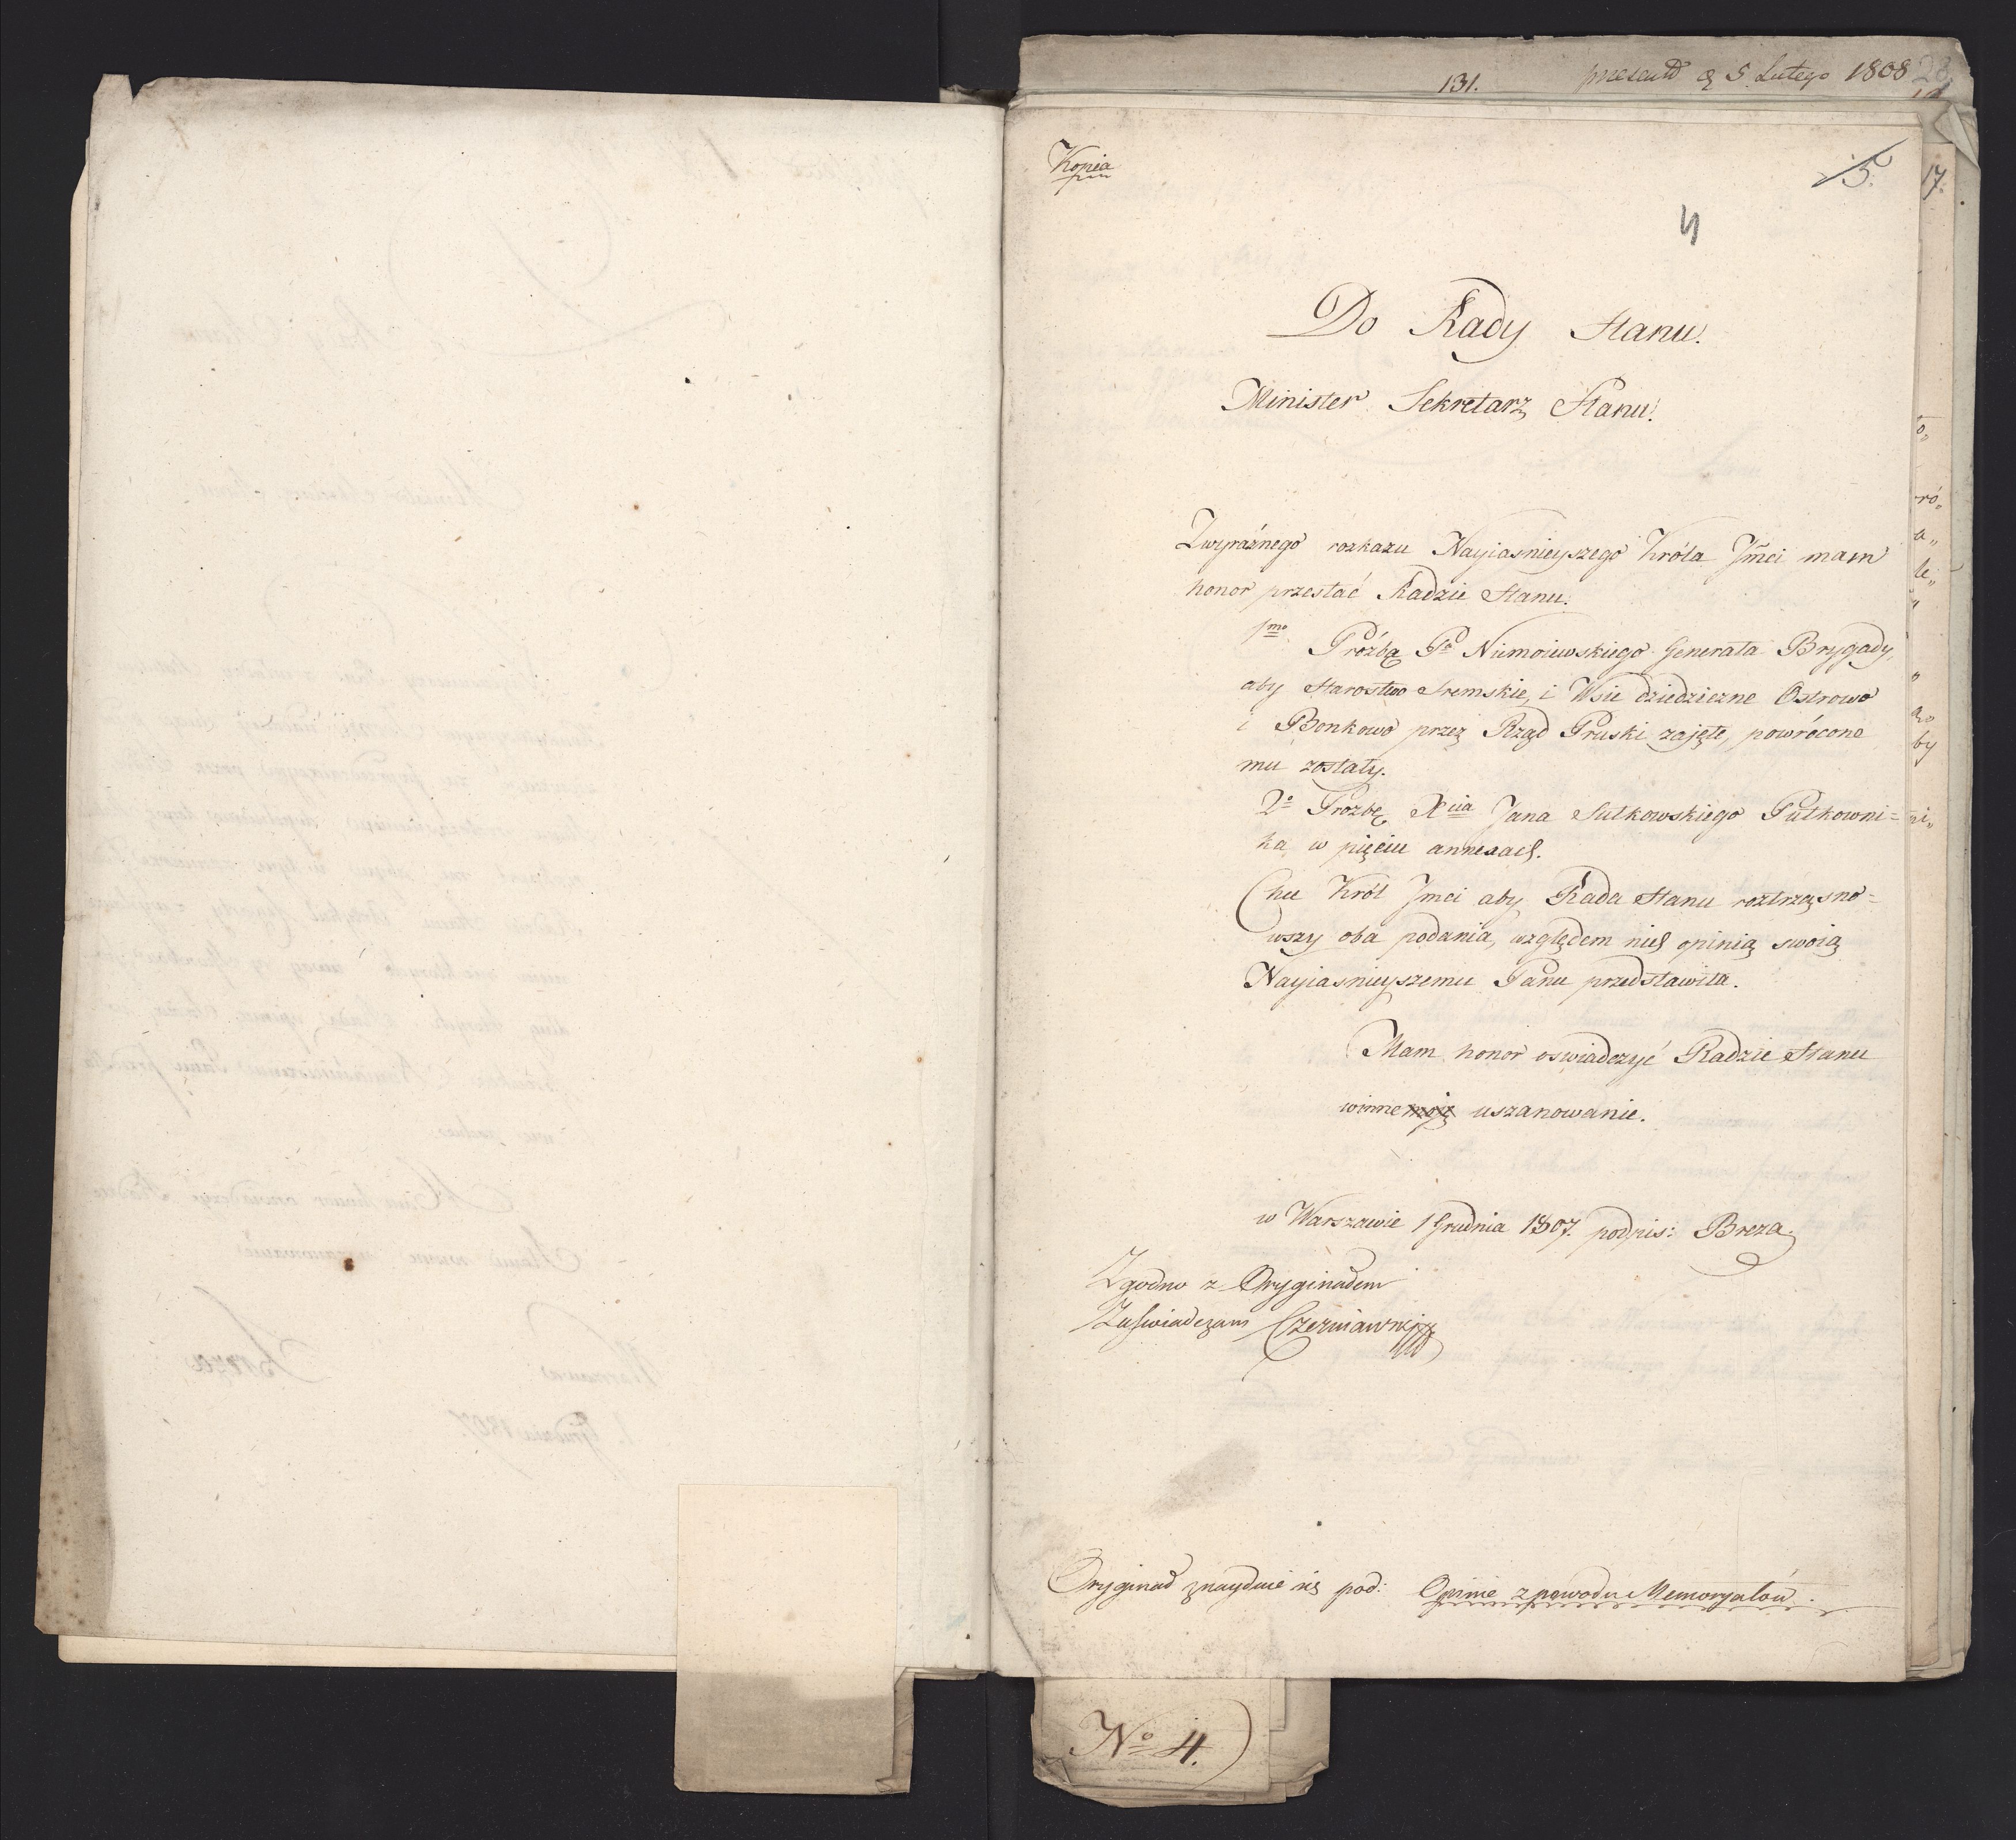 131. present d 5 Lutego 1808
Kopia
5.
17.
4
Do Rady Stanu.
Minister Sekretarz Stanu.
Zwyraźnego rozkazu Nayiasnieyszego Króla Jmci mam
honor przesłać Radzie Stanu.
1mo Proźbę Pa Niemoiewskiego Generała Brygady,
aby Starostwo Sremskie, i Wsie dziedziczne Ostrowo
i Bonkowo przez Rząd Pruski zajęte, powrócone
mu zostały.
2o Prozbę Xcia Jana Sułkowskiego Pułkowni=
ka w pięciu annexach.
Chce Król Jmci aby Rada Stanu roztrząsno=
wszy oba podania, względem nich opinią swoią
Nayiasnieyszemu Panu przedstawiła.
Mam honor oswiadczyć Radzie Stanu
winne moje uszanowanie.
w Warszawie 1 Grudnia 1807. podpis: Breza.
Zgodno z Oryginałem
Zaświadczam
Oryginał znayduie się pod: Opinie z powodu Memoryałow.
No 4.